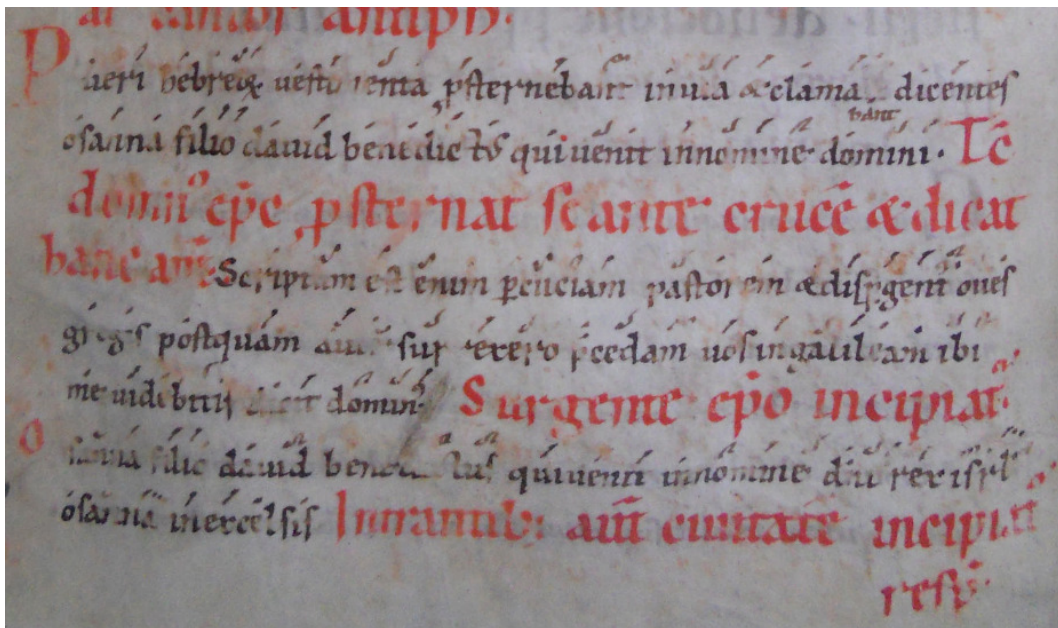 antiph.
Pueri hebreoꝝ uestimenta ꝓsternebant inuia &clama dicentes
bant
osanna filio dauid benedictus qui uenit innomine domini. Tc̄
domn' ep̄c ꝓsternat se ante crucē & dicat
hanc añ. Scriptum est enim ꝑcuciam pastorem &dispgent oues
gregis postquam aut surrexero p̄cedam uos ingalileam ibi
me uidebitis dicit domin' Surgente ep̄o incipiat'
osanna filio dauid benedictus quiuenit innomine dn̄i rex isrl
osanna inexcelsis Intrantib; aut̄ ciuitatē incipiat
resp̄.